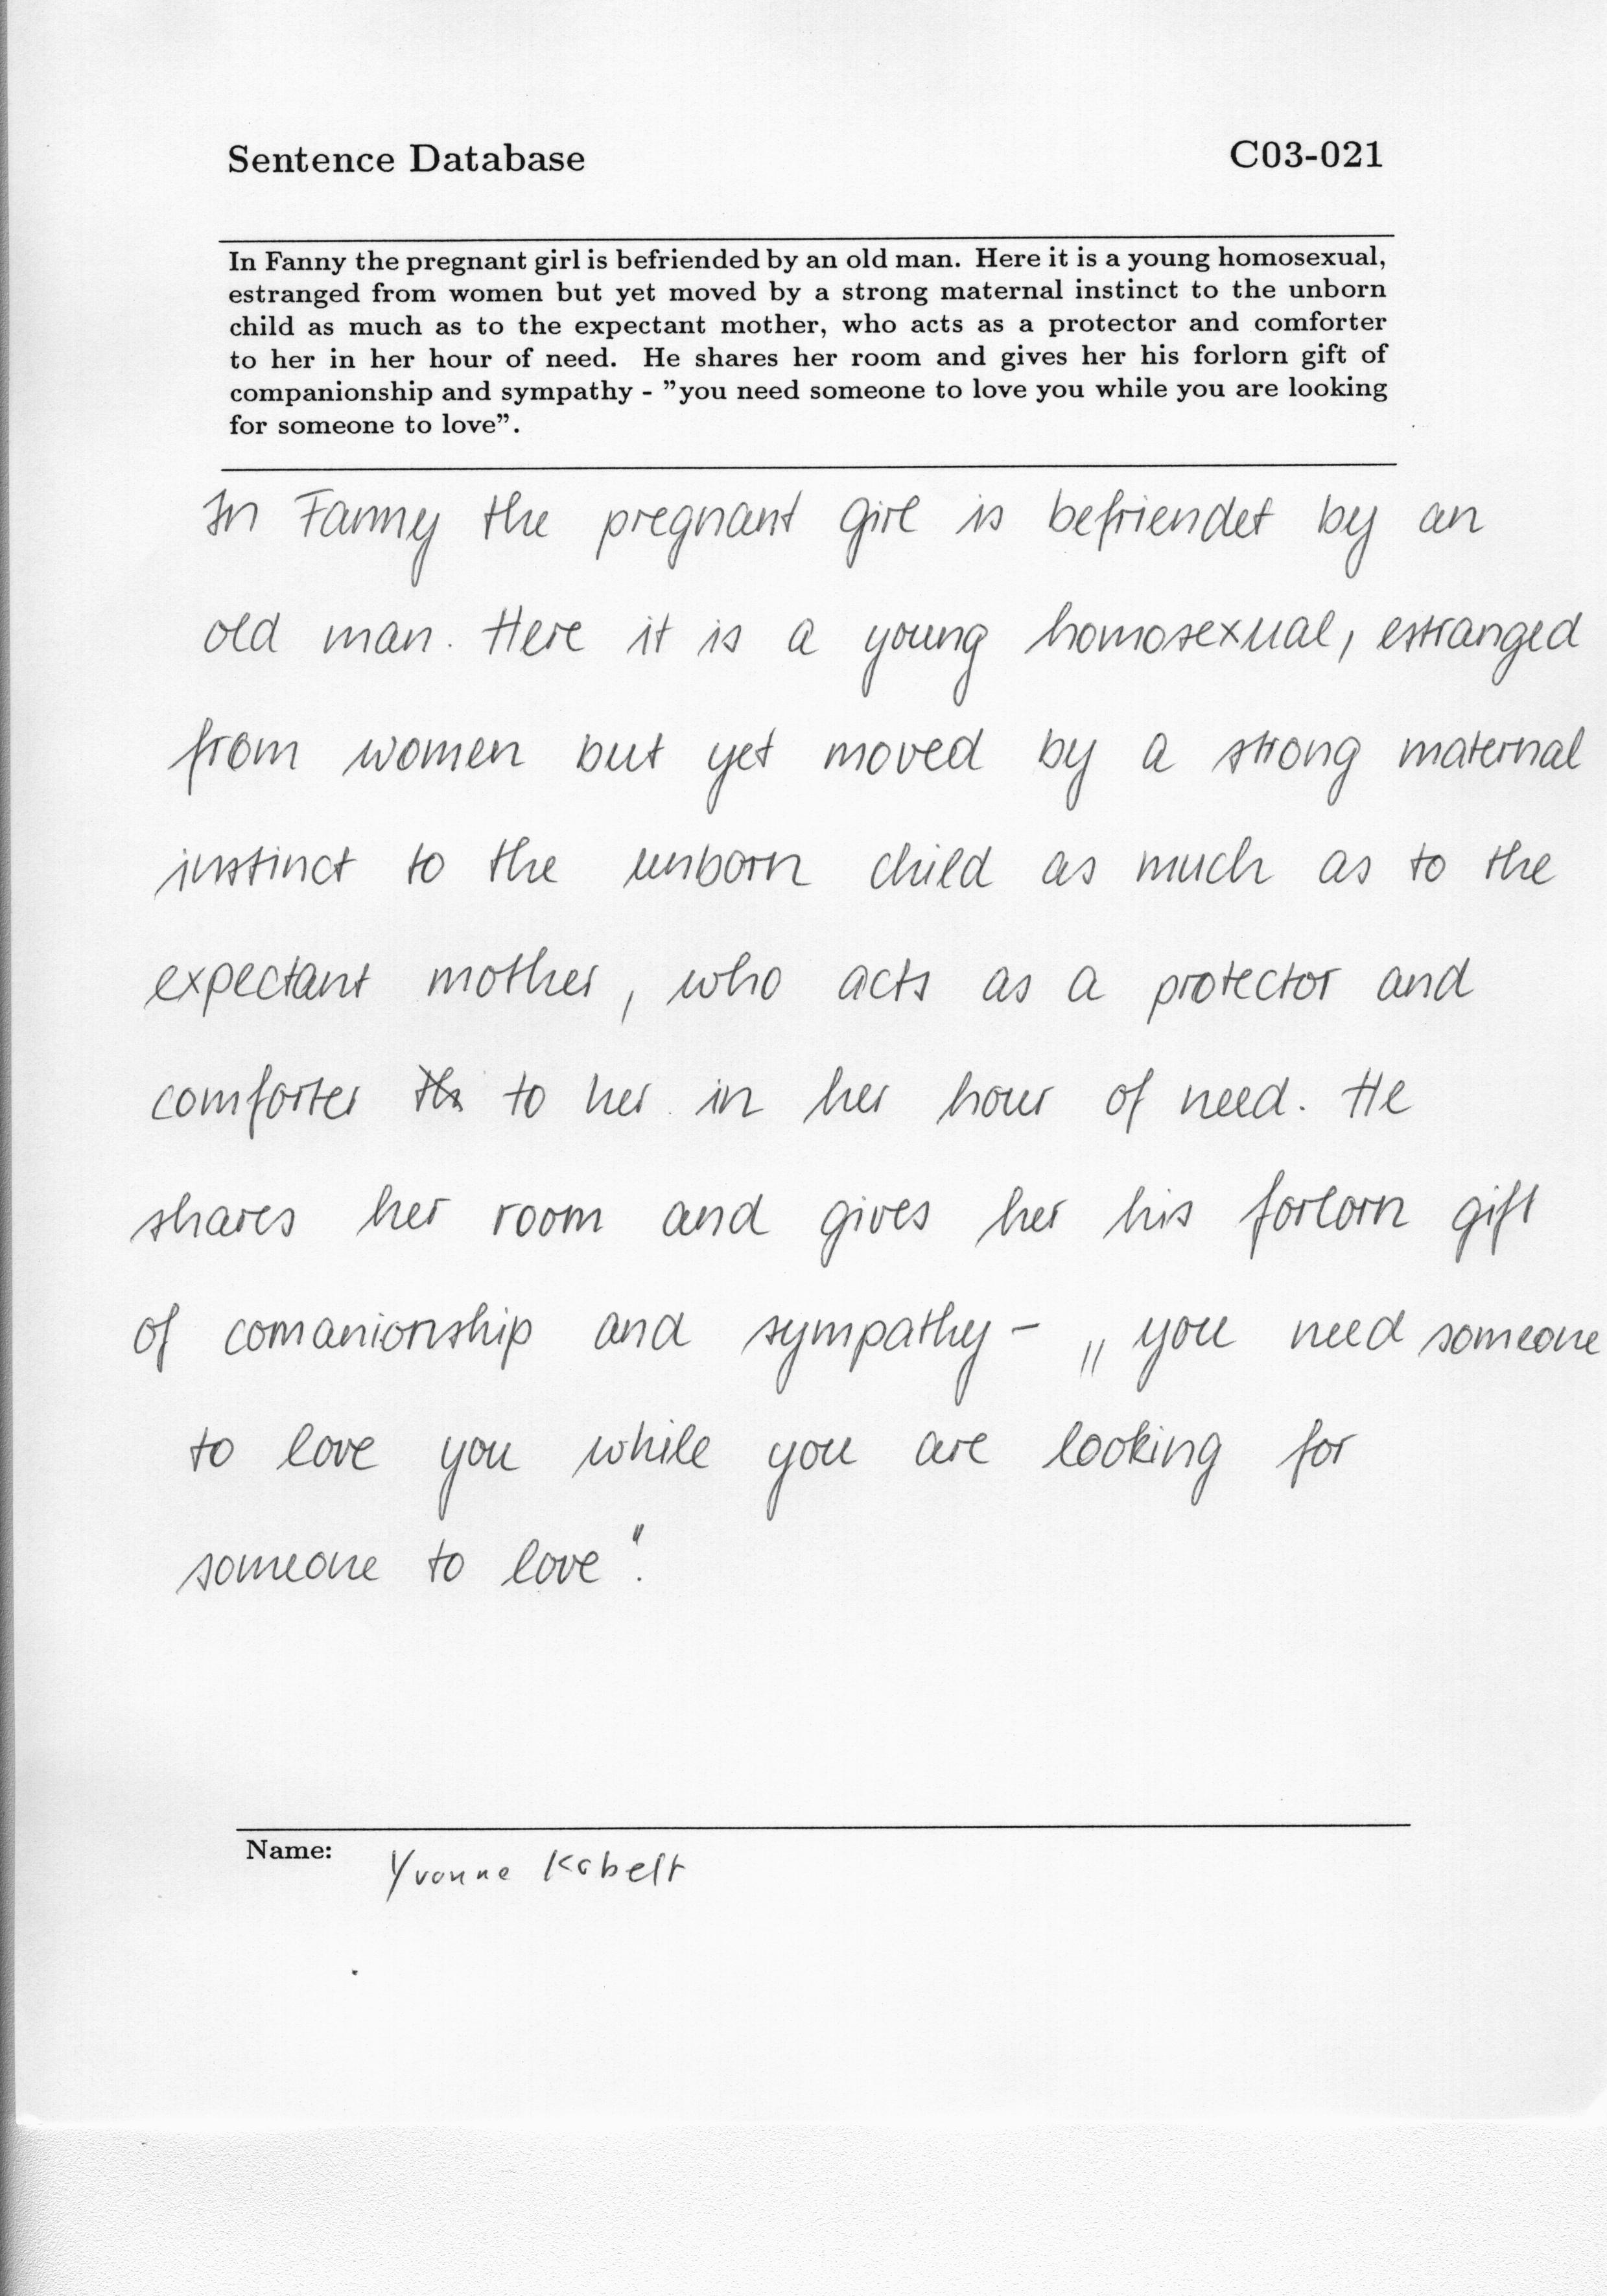 Sentence Database C03-021
In Fanny the pregnant girl is befriended by an old man. Here it is a young homosexual,
estranged from women but yet moved by a strong maternal instinct to the unborn
child as much as to the expectant mother, who acts as a protector and comforter
to her in her hour of need. He shares her room and gives her his forlorn gift of
companionship and sympathy - "you need someone to love you while you are looking
for someone to love".
In Fanny the pregnant girl is befriendet by an
old man. Here it is a young homosexual, estranged
from women but yet moved by a strong maternal
instinct to the unborn child as much as to the
expectant mother, who acts as a protector and
comforter to her in her hour of need. He
shares her room and gives her his forlorn gift
of comanionship and sympathy - „you need someone
to love you while you are looking for
someone to love".
Name: Yvonne Kabelt